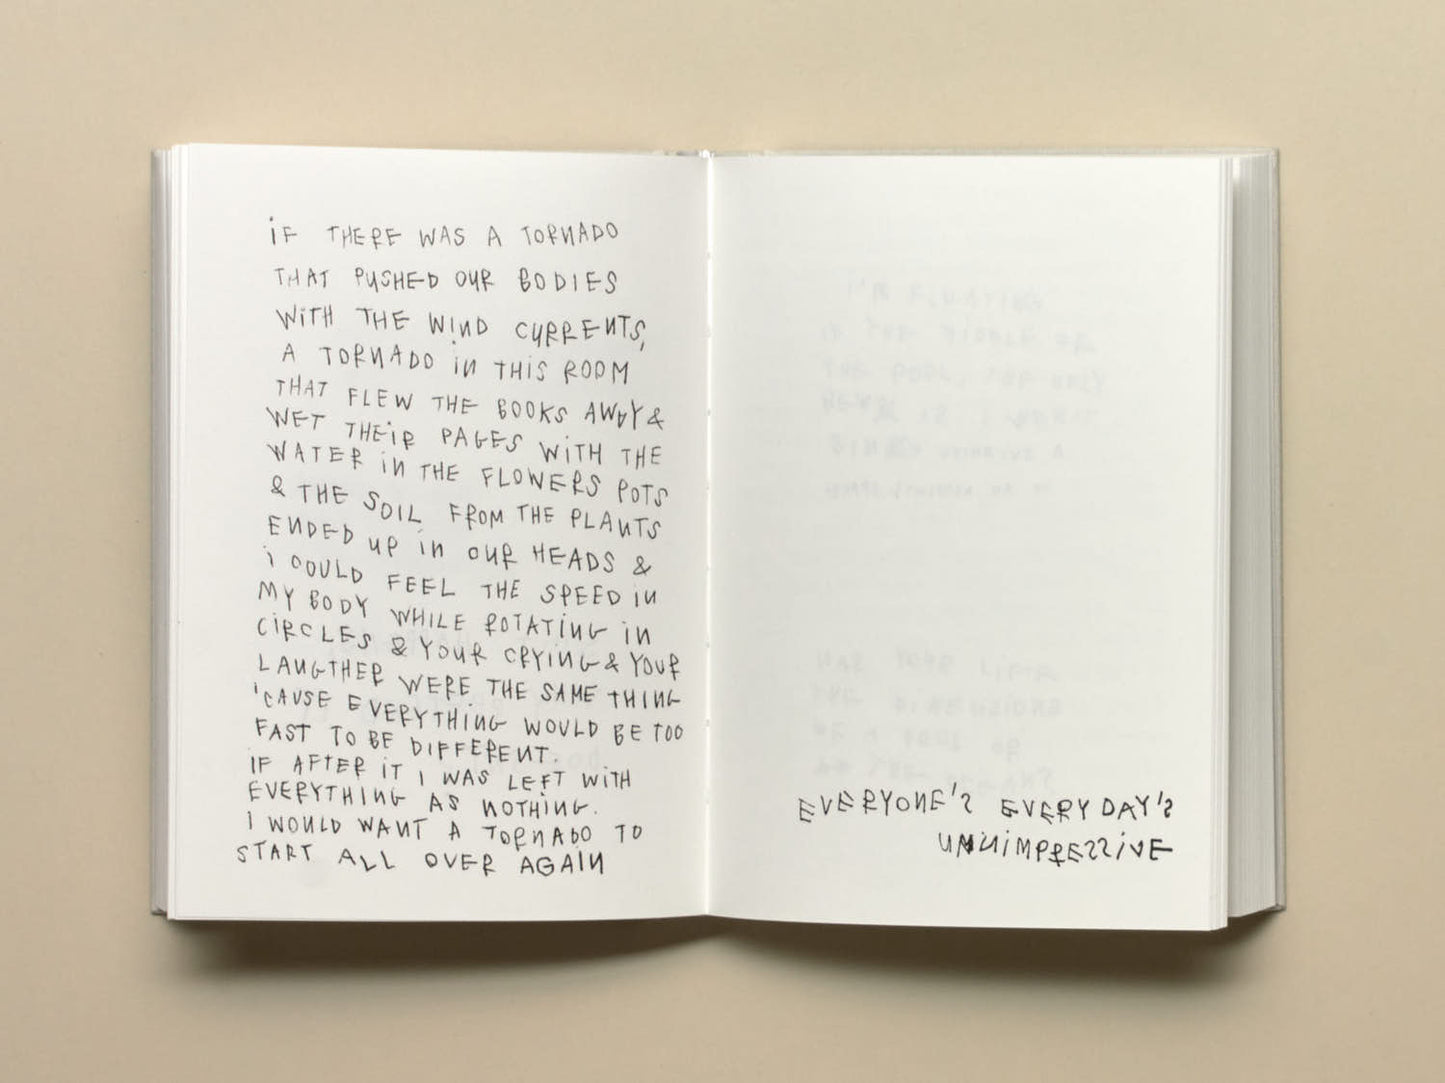 iF THERE WAS A TORNADO
THAT PUSHED OUR BODIES
WiTH THE WIND CURRENTS,
A TORNADO iN THiS ROOM
THAT FLEW THE BOOKS AWAY &
WET THEiR PAGES WiTH THE
WATER iN THE FLOWERS POTS
& THE SOIL FROM THE PLANTS
ENDED UP iN OUR HEADS &
i COULD FEEL THE SPEED iN
MY BODY WHILE ROTATiNG iN
CiRCLES & YOUR CRYING & YOUR
LAUGTHER WERE THE SAME THING
'CAUSE EVERYTHiNG WOULD BE TOO
FAST TO BE DIFFERENT.
IF AFTER iT I WAS LEFT WiTH
EVERYTHING AS NOTHiNG.
I WOULD WANT A TORNADO TO
START ALL OVER AGAiN
EVERYONE'S EVERY DAY'S
UNNiMPRESSiVE